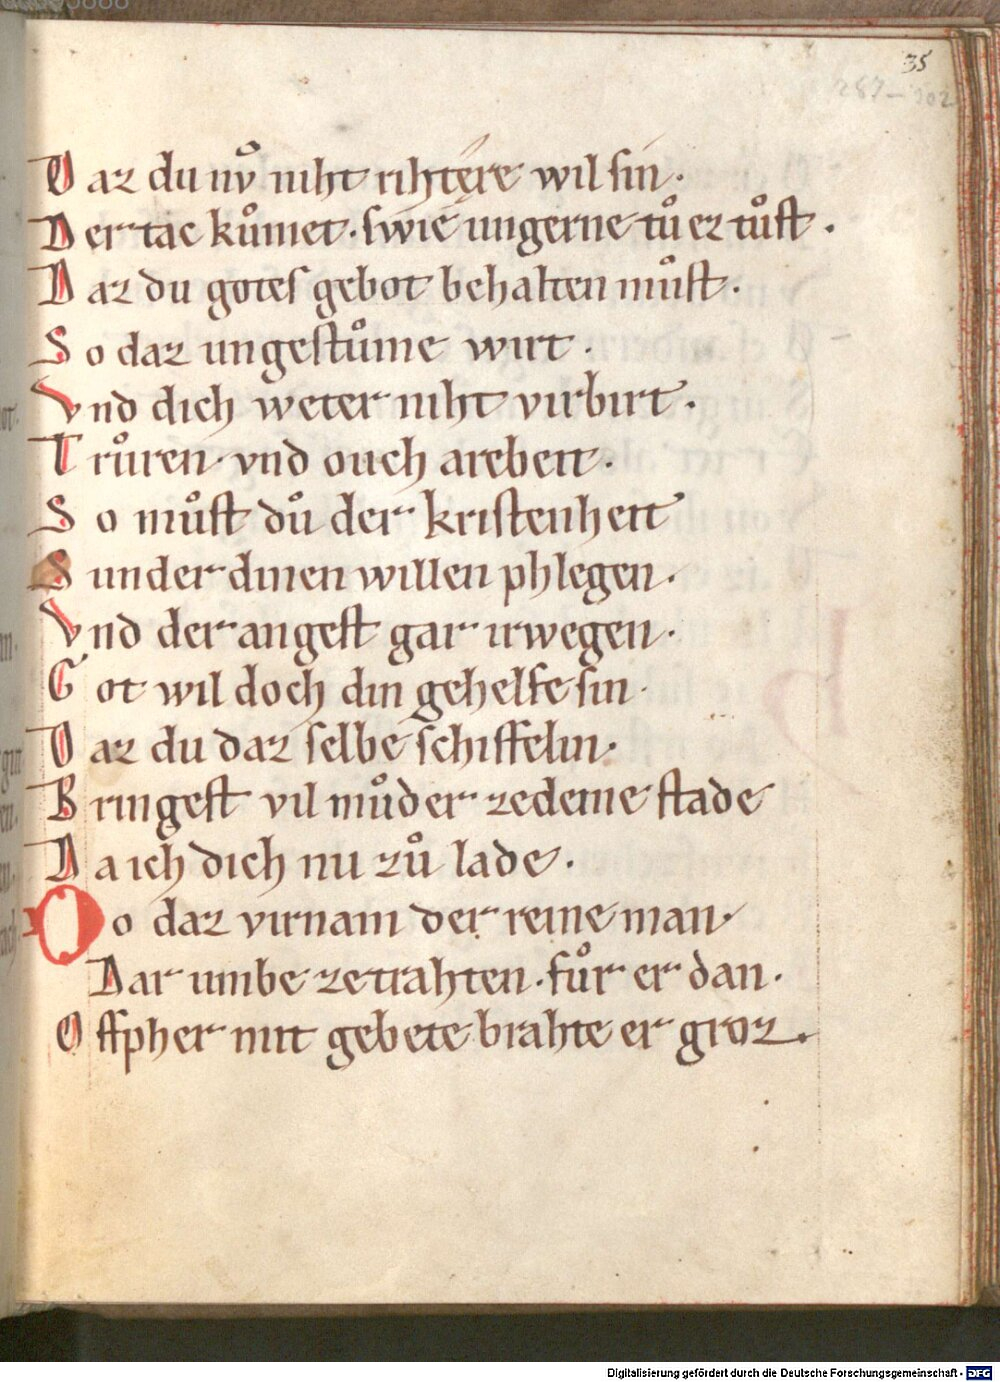 35
287–302
Daz du nv̊ niht rihtęre wil sin.
Der tac kůmet. swie ungerne tů ez tůst.
Daz du gotes gebot behalten můst.
So daz ungestůme wirt.
Vnd dich weter niht virbirt.
Trůren. vnd ouch arebeit.
So můst dů der kristenheit
Sunder dinen willen phlegen.
Vnd der angest gar irwegen.
Got wil doch din gehelfe sin.
Daz du daz selbe schiffelin.
Bringest vil můder zedeme stade
Da ich dich nu zů lade.
Do daz virnam der reine man.
Dar umbe zetrahten. fůr er dan.
Offpher mit gebete brahte er groz.
Digitalisierung gefördert durch die Deutsche Forschungsgemeinschaft - DFG